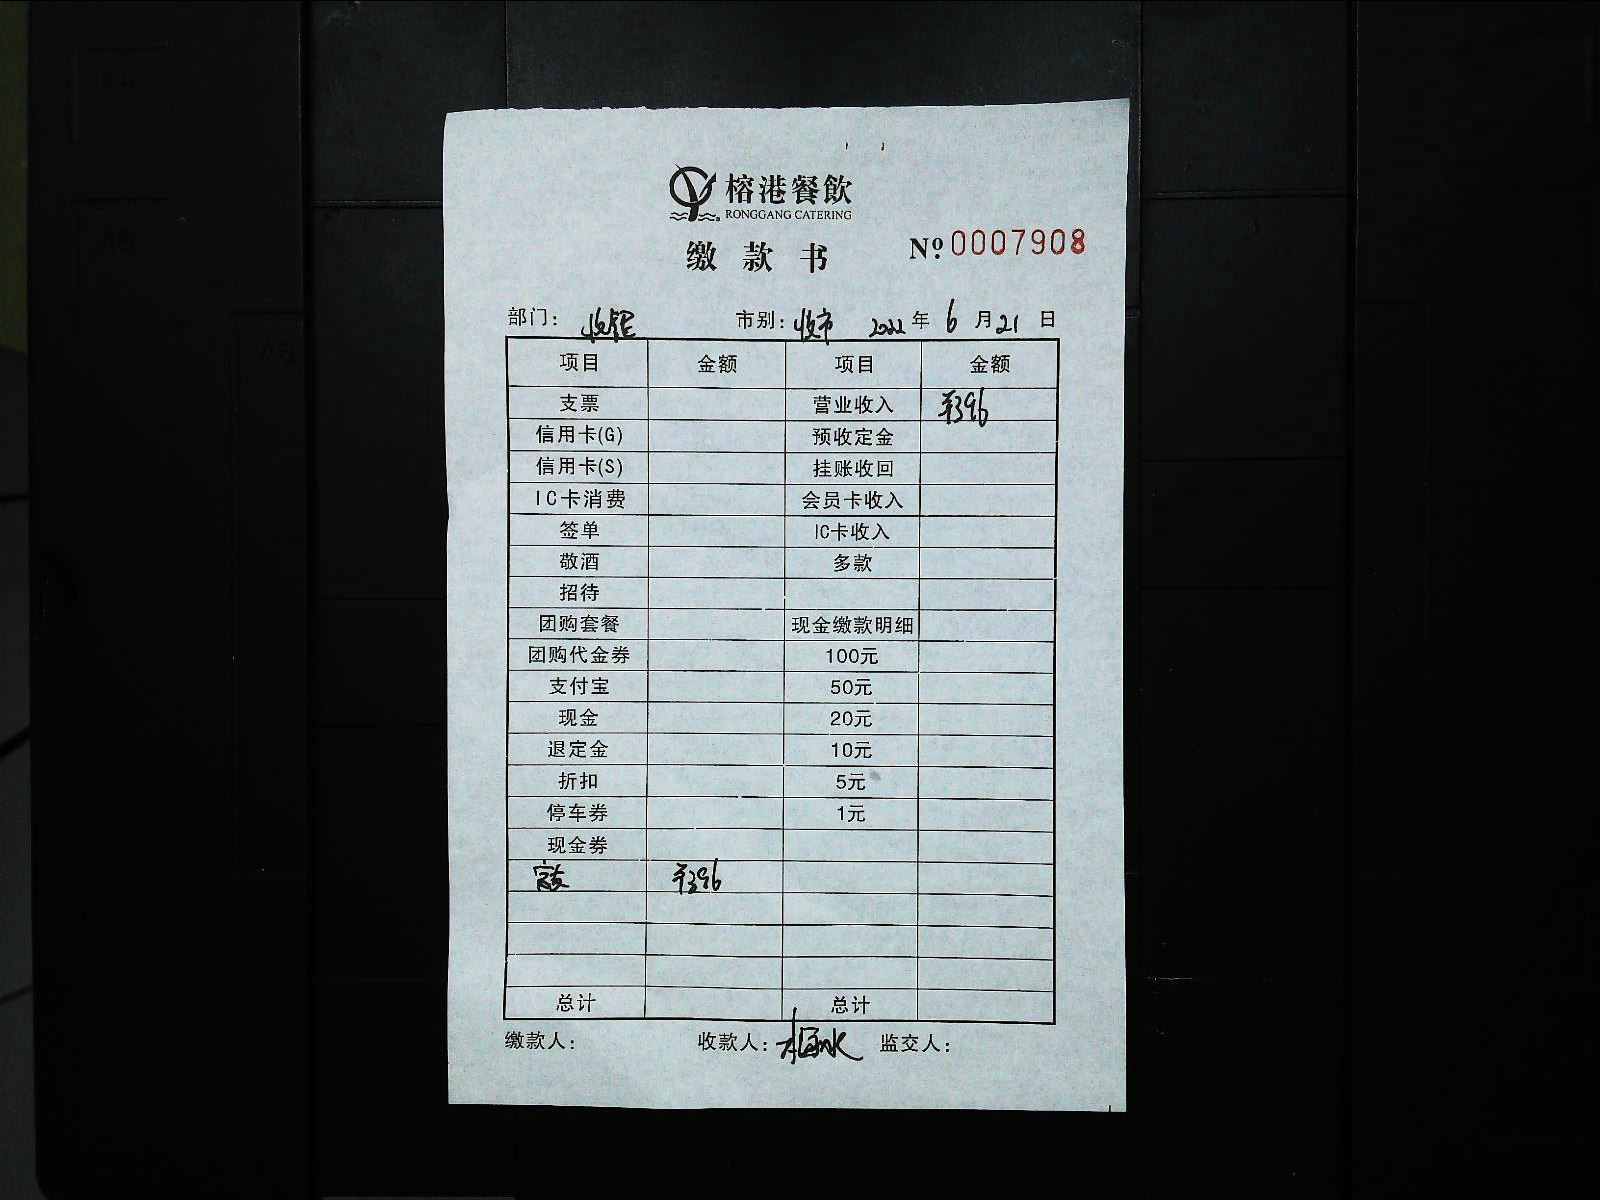 榕港餐飲
RONGGANG CATERING
缴款书 Nº:0007908
部门: 收银 市别: 夜市 2022年6月21日
项目 金额 项目 金额
支票 营业收入 ¥396
信用卡(G) 预收定金
信用卡(S) 挂账收回
IC卡消费 会员卡收入
签单 IC卡收入
敬酒 多款
招待
团购套餐 现金缴款明细
团购代金券 100元
支付宝 50元
现金 20元
退定金 10元
折扣 5元
停车券 1元
现金券
¥396
总计 总计
缴款人: 收款人: 监交人: